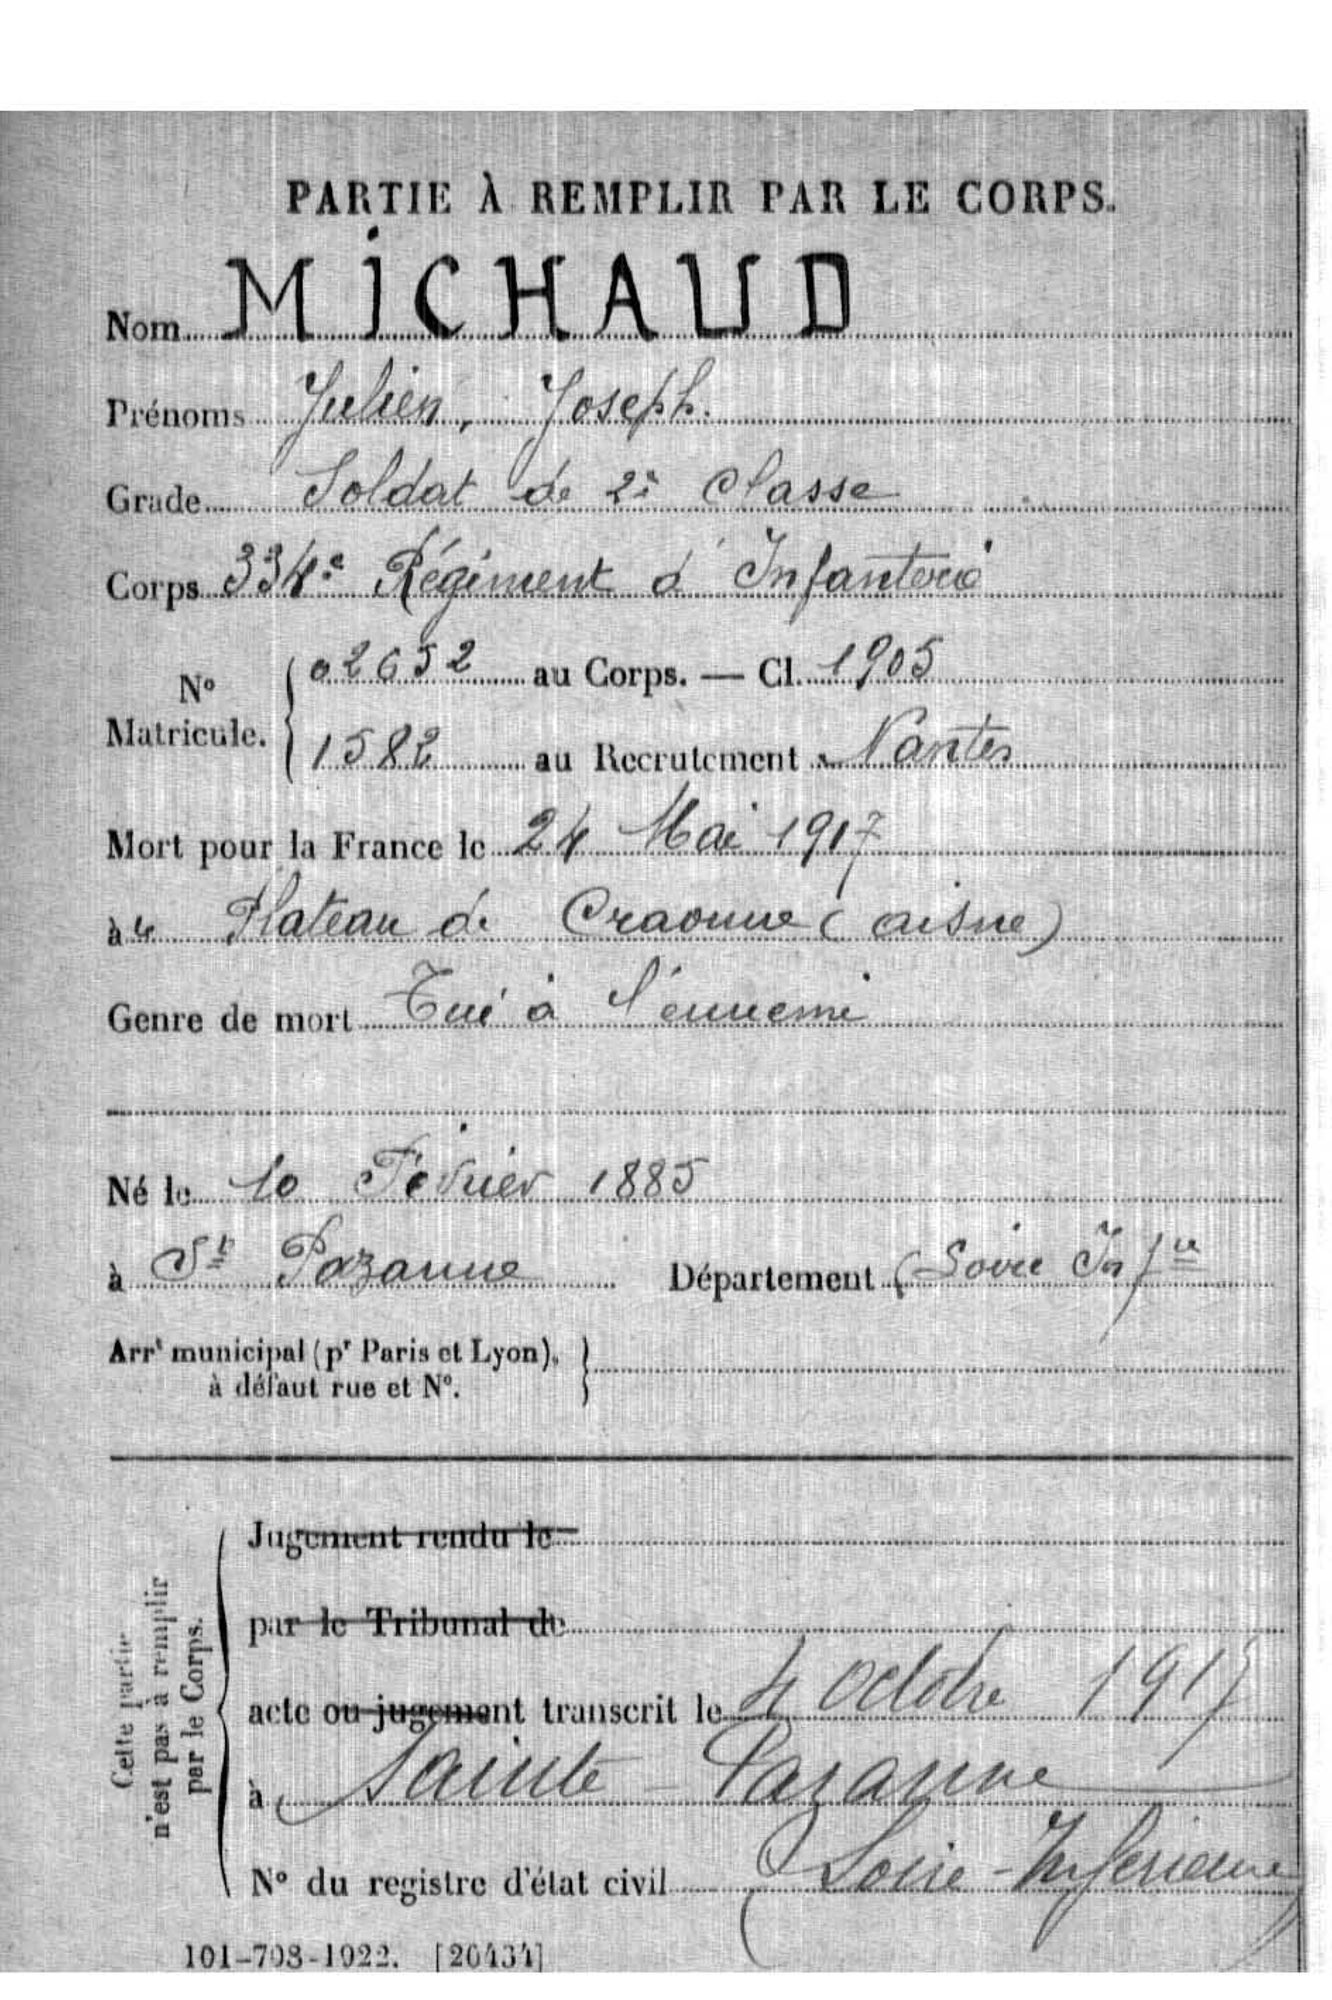 PARTIE À REMPLIR PAR LE CORPS.
Nom MiCHAUD
Prénoms Julien, Joseph.
Grade Soldat de 2e Classe
Corps 334e Régiment d'Infanterie
No Matricule. { 02652 au Corps. — Cl. 1905
1582 au Recrutement Nantes
Mort pour la France le 24 Mai 1917
à le Plateau de Craonne (aisne)
Genre de mort Tué à l'ennemi
Né le 10 Février 1885
à Ste Pazanne Département (Loire Infre
Arrt municipal (pr Paris et Lyon),
à défaut rue et No.
Cette partie
n'est pas à remplir
par le Corps.
Jugement rendu le
par le Tribunal de
acte ou jugement transcrit le 4 Octobre 1917
à Sainte-Pazanne
No du registre d'état civil (Loire-Inférieure
101-708-1922. [26434]